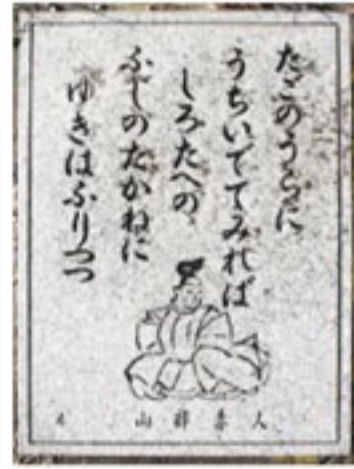 たごのうらに
うちいでてみれば
しろたへの
ふじのたかねに
ゆきはふりつつ
4 山部赤人